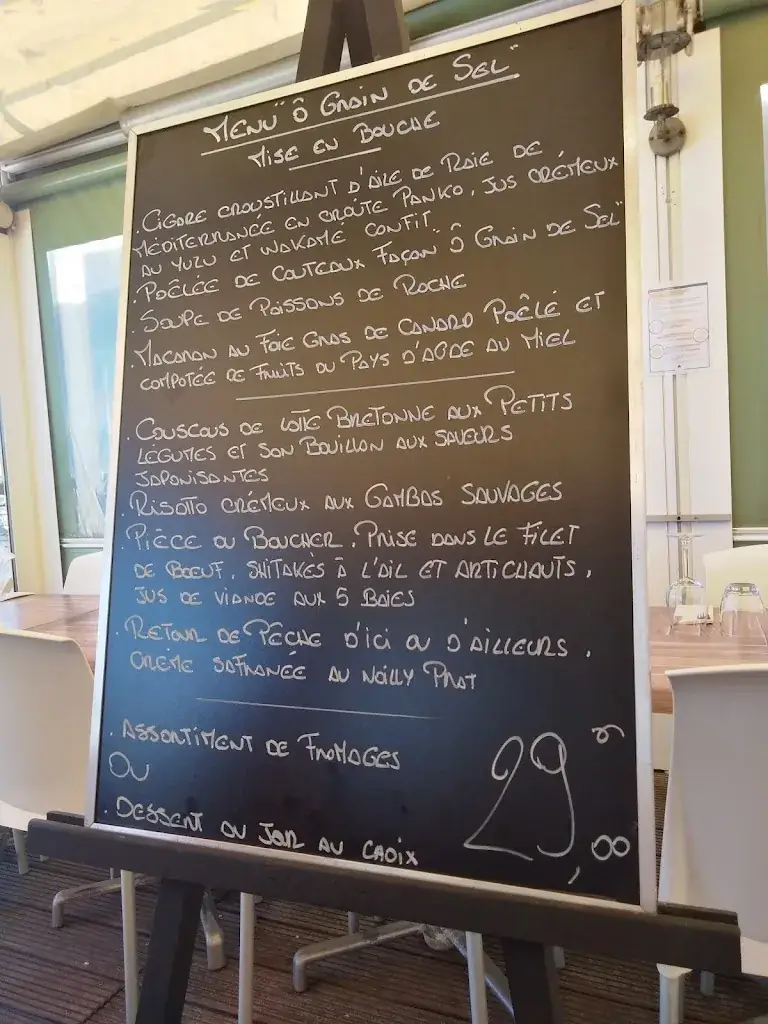 MENU "Ô GRAIN DE SEL"
MISE EN BOUCHE
. CIGARE CROUSTILLANT D'AILE DE RAIE DE
MÉDITERRANÉE EN CROÛTE PANKO, JUS CRÉMEUX
AU YUZU ET WAKAMÉ CONFIT
. POÊLÉE DE COUTEAUX FAÇON "Ô GRAIN DE SEL"
. SOUPE DE POISSONS DE ROCHE
. MACARON AU FOIE GRAS DE CANARD POÊLÉ ET
COMPOTÉE DE FRUITS DU PAYS D'AGDE AU MIEL
. COUSCOUS DE LOTTE BRETONNE AUX PETITS
LÉGUMES ET SON BOUILLON AUX SAVEURS
JAPONISANTES
. RISOTTO CRÉMEUX AUX GAMBAS SAUVAGES
. PIÈCE DU BOUCHER, PRISE DANS LE FILET
DE BŒUF, SHITAKÉS À L'AIL ET ARTICHAUTS,
JUS DE VIANDE AUX 5 BAIES
. RETOUR DE PÊCHE D'ICI OU D'AILLEURS,
CRÈME SAFRANÉE AU NOILLY PRAT
. ASSORTIMENT DE FROMAGES
OU
. DESSERT DU JOUR AU CHOIX
29,00